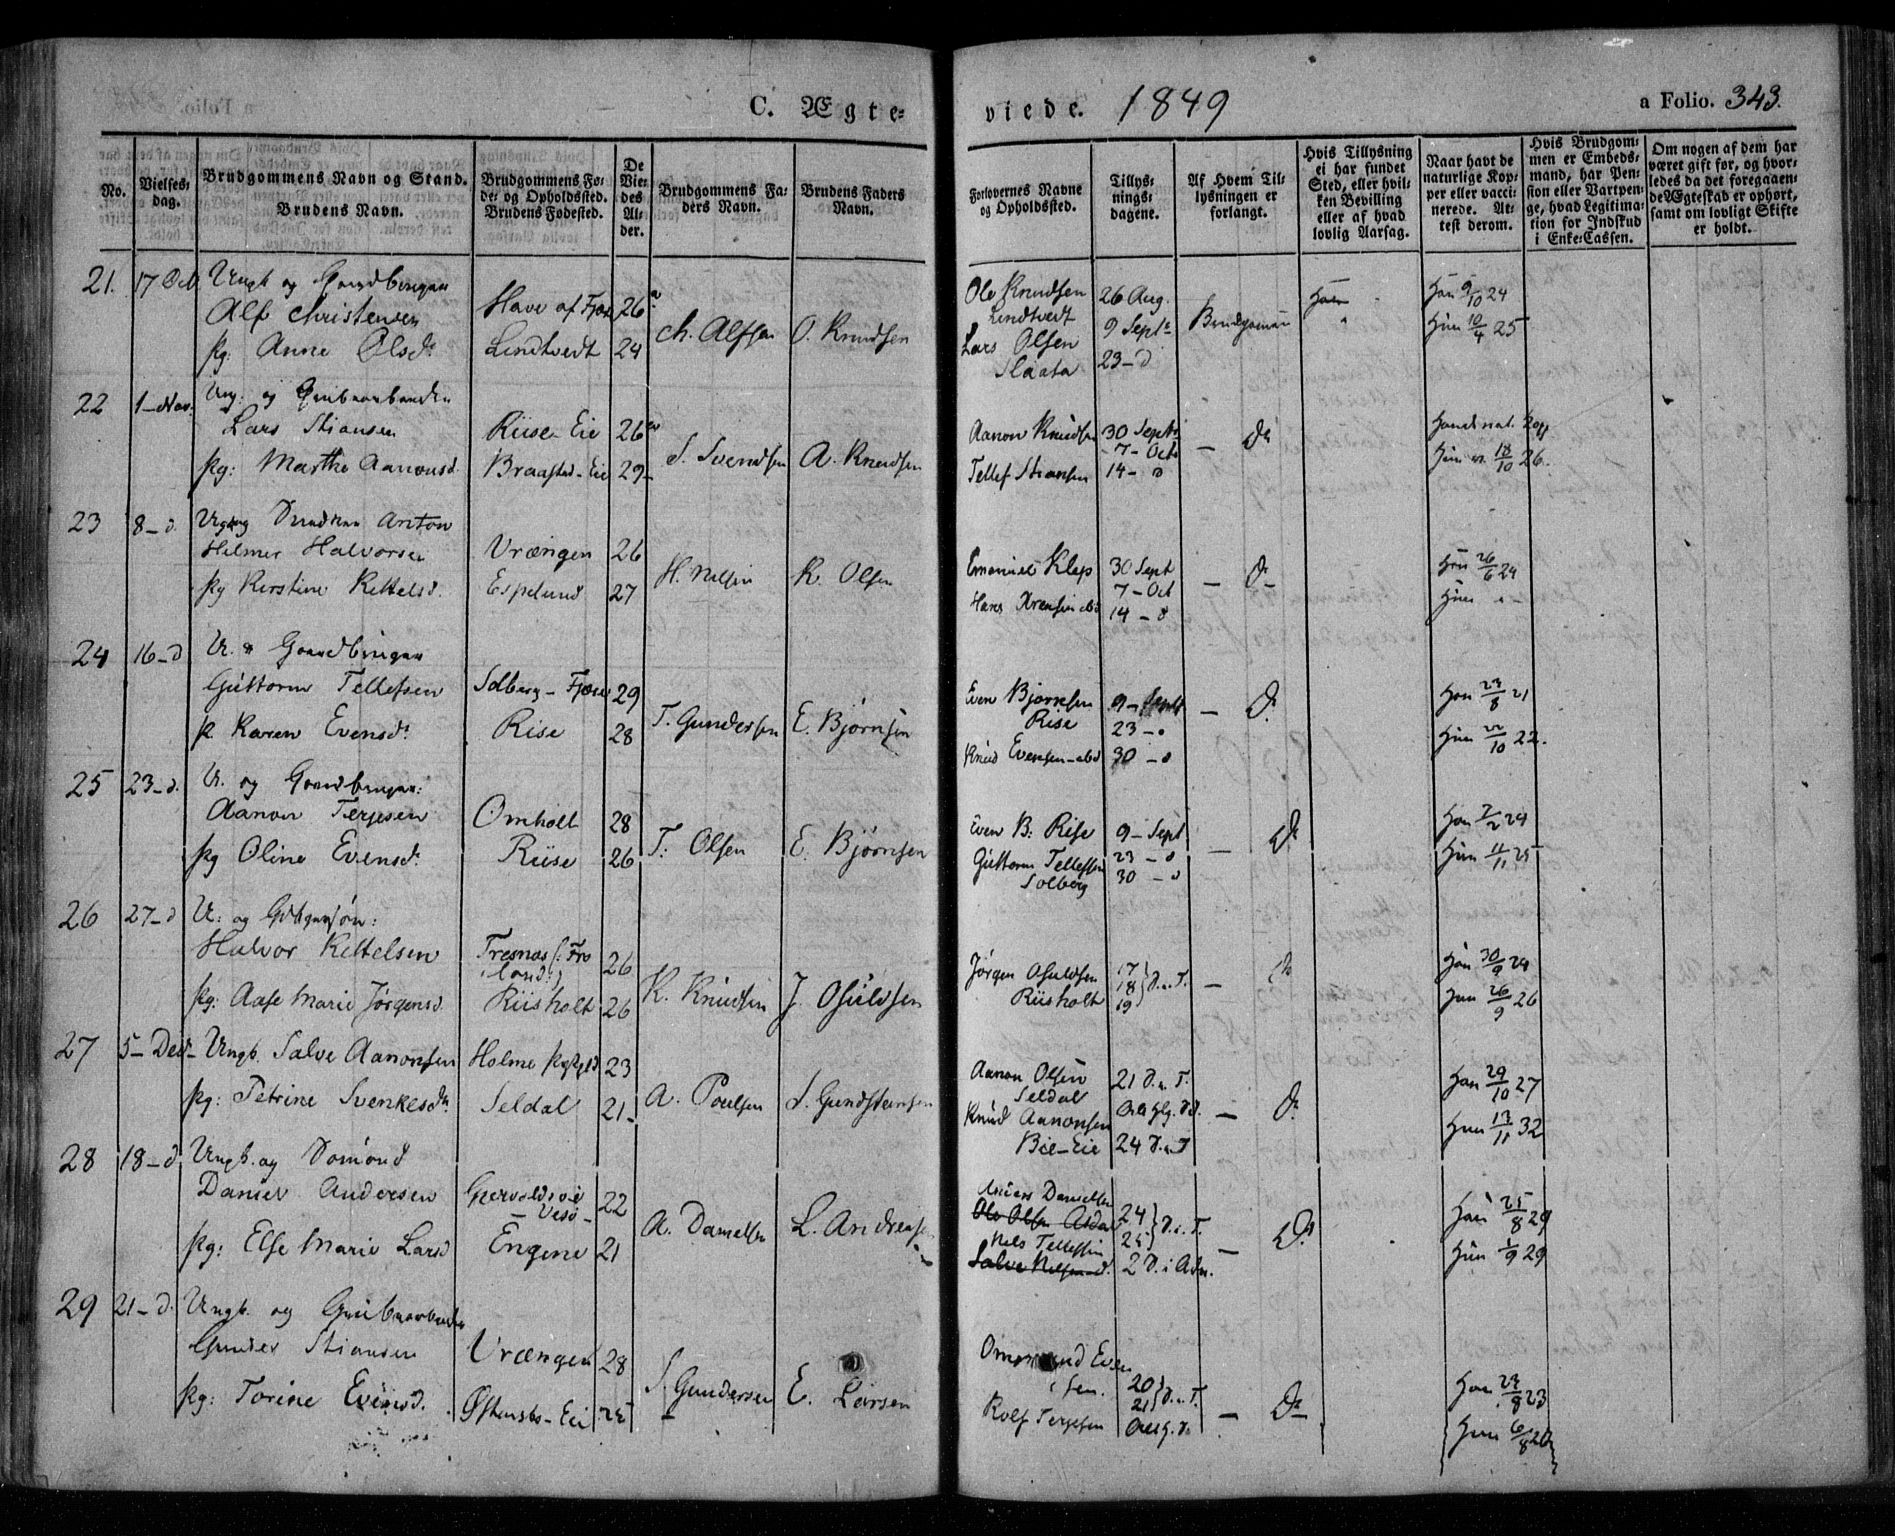 C. Ægte-
viede. 1849
a Folio. 343.
No.
Vielses-
dag.
Brudgommens Navn og Stand.
Brudens Navn.
Brudgommens Fø-
de- og Opholdssted.
Brudens Fødested.
De
Vie-
des
Al-
der.
Brudgommens Fa-
ders Navn.
Brudens Faders
Navn.
Forlovernes Navne
og Opholdssted.
Tillys-
nings-
dagene.
Af Hvem Til-
lysningen er
forlangt.
Hvis Tillysning
ei har fundet
Sted, eller hvil-
ken Bevilling
eller af hvad
lovlig Aarsag.
Naar havt de
naturlige Kop-
per eller vacci-
nerede. At-
test derom.
Hvis Brudgom-
men er Embeds-
mand, har Pen-
sion eller Vartpen-
ge, hvad Legitima-
tion for Indskud
i Enke-Cassen.
Om nogen af dem har
været gift før, og hvor-
ledes da det foregaaen-
de Ægteskab er ophørt,
samt om lovligt Skifte
er holdt.
21. 17 Oct. Ungk og
Alf Christensen
Have af Fjære 26
Pg: Anne Olsd.
Lindtvedt 24
Ch. Alfsen O. Knudsen
Ole Knudsen
Lindtvedt
Lars Olsen
Slaata
26 Aug.
9 Septr
23 - d
Han 9/10 24
Hun 10/4 25
22 1 - Nov. Ung: og
Lars Stiansen
Riise Eie 26
Pg: Marthe Aanonsd.
Braastad - Eie 29 -
S. Svendsen A. Knudsen
Aanon Knudsen
Tellef Stiansen
30 Septr
7 - Oct
14 - d
Do
Hun v. 18/10 26.
23 8 - d. Anton
Helmer Halvorsen
Vrængen 26
Pg Kirstine Kittelsd.
Espelund 27
H. Nilsen K. Olsen
Emanuel Klep
Hans
30 Sept
7 - Oct
14 - d
Do
Han 26/6 24
Hun
24 16 - d U. & Gaardbruger
Guttorm Tellefsen
Solberg - Fjære 29
P. Karen Evensd.
Rise 28
T. Gundersen E. Bjørnsen
Even Bjørnsen
Rise
Knud Evensen - ibd
9 - Septr
23 - d
30 - d
D.
Han 23/8 21
Hun 22/10 22.
25 23 - d. U. og Gaardbruger:
Aanon Terjesen
Omholt 28
Pg Oline Evensd.
Riise 26
T. Olsen E. Bjørnsen
Even B: Rise
Guttorm Tellefsen
Solberg
9 - Sept
23 - d
30 - d
Do
Han 7/2 24
Hun 11/11 25
26 27 - d U: og
Halvor Kittelsen
Tresnæs (: Fro
land :) 26
Pg: Aase Marie Jørgensd.
Riisholt 26
K. Knudsen J. Osuldsen
Jørgen Osuldsen
Riisholt
17
18
19
D. n. T.
Do
Han 30/9 24
Hun 26/9 26
27 5 - Decbr Ungk. Salve Aanonsen
Holme 23
Pg: Petrine Svenkesd.
Seldal 21 -
A. Poulsen S. Gundstensen
Aanon Olsen
Seldal
Knud Aanonsen
Bie - Eie
21 D. n. T.
24 D. n. T
D.
Han 29/10 27
Hun 13/11 32
28 18 - d Ungk. og Sømand
Daniel Andersen
22
Pg: Else Marie Larsd
Engene 21
A. Danielsen L. Andreasen
Anders Danielsen
Ole Olsen
Nils Tellefsen
Salve
24
25
D. n. T.
2 D. i Adv.
Do
Han 25/8 29
Hun 1/9 29
29 21 - d. Ungk. og
Gunder Stiansen
Vrængen 28
Pg: Torine Evensd.
Østensbo - Eie 25
S. Gundersen E. Larsen
Even
sen.
Rolf Terjesen
20
21
D. n. T.
Do
Han 23/8 23
Hun 6/8 26